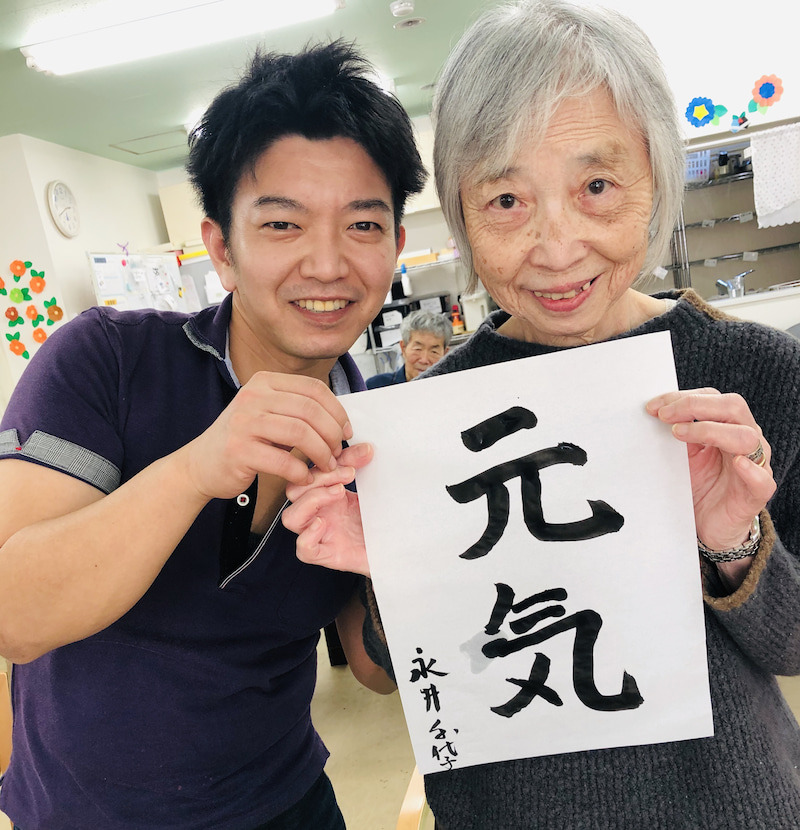 元気
永井千代子